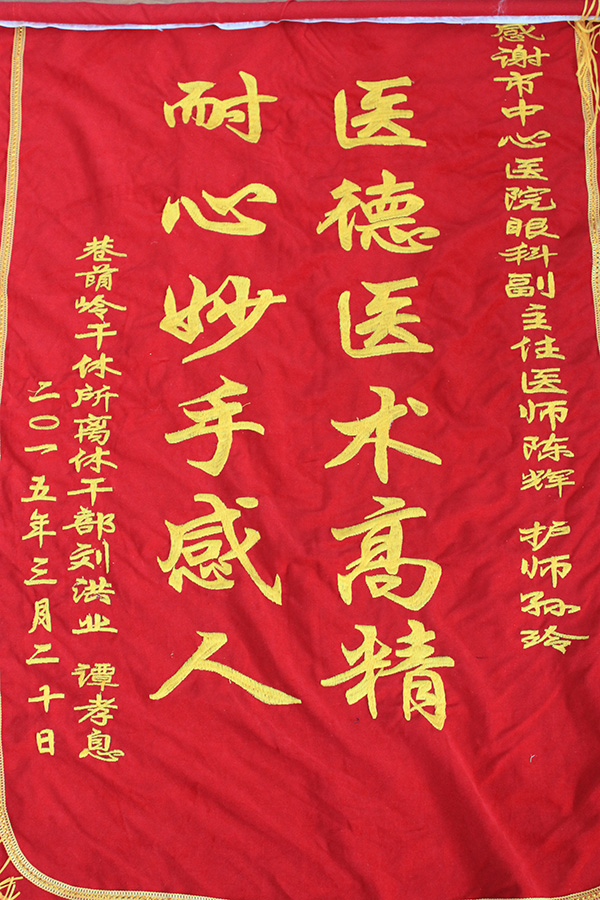 感谢市中心医院眼科副主任医师陈辉 护师孙玲
医德医术高精
耐心妙手感人
巷荫岭干休所离休干部刘洪业 谭孝息
二〇一五年三月二十日